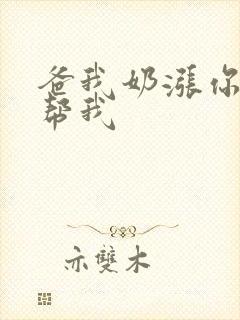 爸我奶漲你
帮我
亦雙木